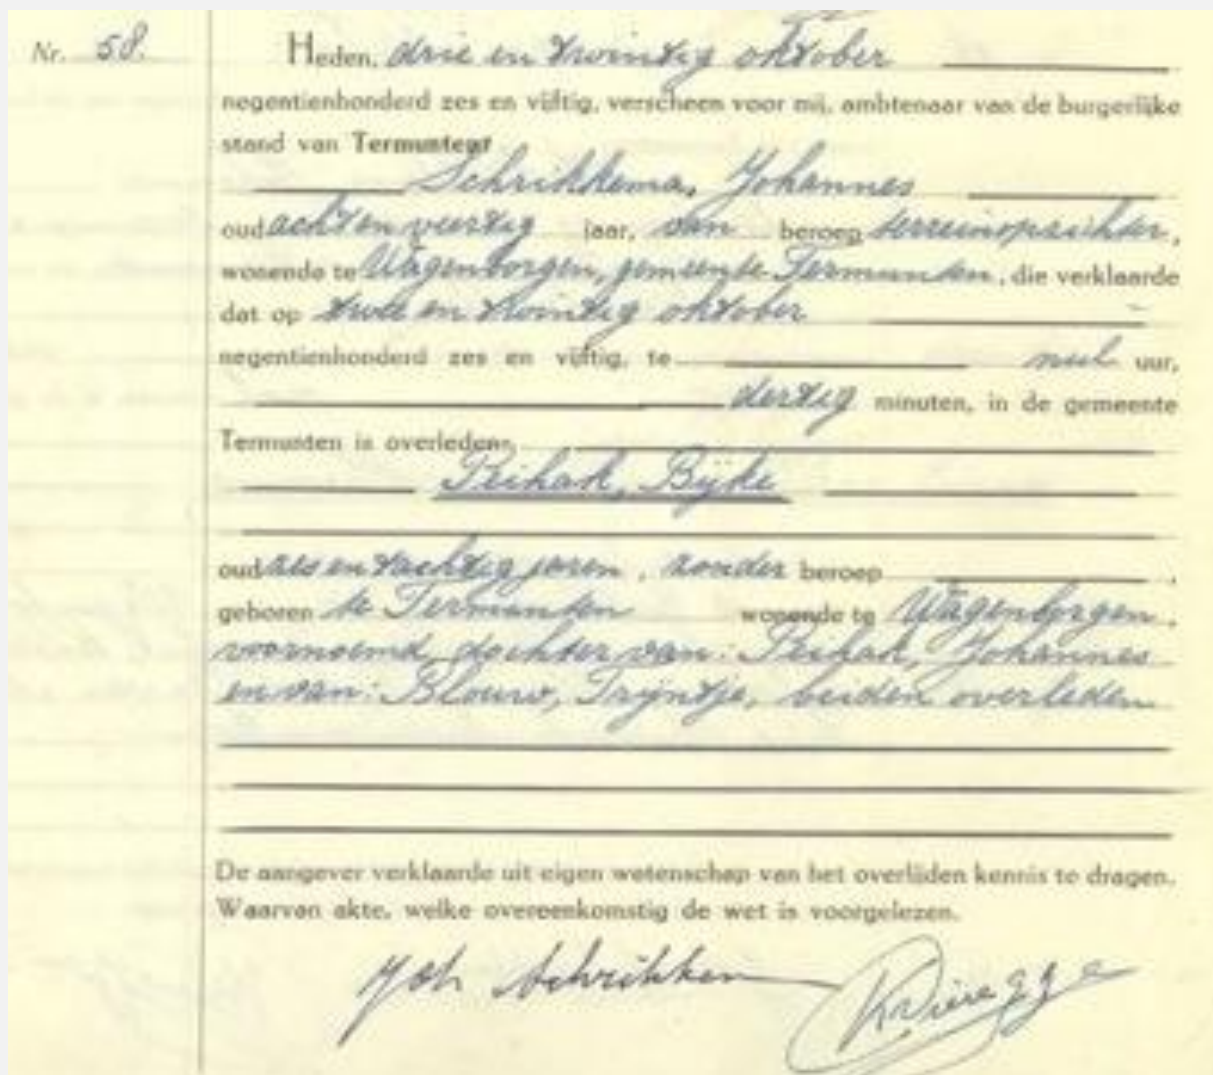 Nr. 58.
Heden, drie en twintig oktober
negentienhonderd zes en vijftig, verscheen voor mij, ambtenaar van de burgerlijke
stand van Termunten
Schrikkema, Johannes
oud acht en veertig jaar, van beroep terreinopzichter,
wonende te Wagenborgen, gemeente Termunten, die verklaarde
dat op twee en twintig oktober
negentienhonderd zes en vijftig, te nul uur,
dertig minuten, in de gemeente
Termunten is overleden:
Bijke
oud zes en tachtig jaren, zonder beroep ,
geboren te Termunten wonende te Wagenborgen,
voornoemd, dochter van: Johannes
en van: Blouw, Trijntje, beiden overleden
De aangever verklaarde uit eigen wetenschap van het overlijden kennis te dragen.
Waarvan akte, welke overeenkomstig de wet is voorgelezen.
Joh Schrikkem